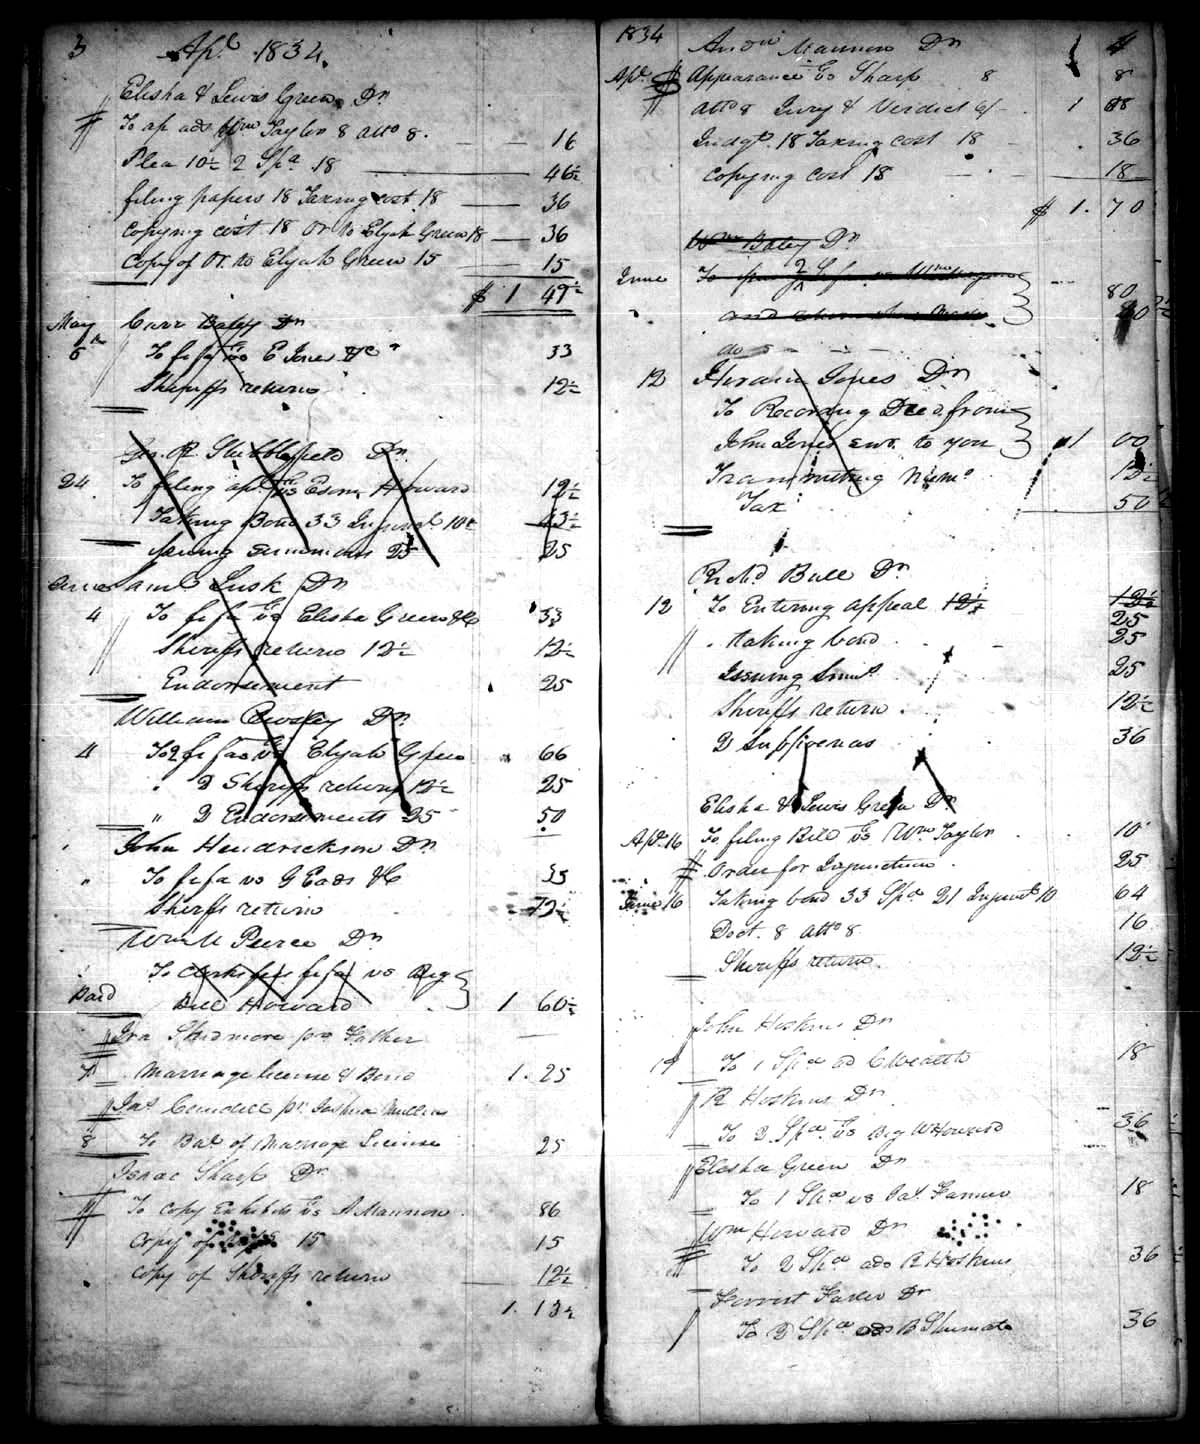 3 Apl. 1834.
Elisha & Lewis Green Dr
To ap ads Wm Taylor 8 atto 8. 16
Plea 10½ 2 Spa 18 46½
filing papers 18 Taxing cost 18 36
Copying cost 18 Or. to Elijah Green 18 36
Copy of Or. to Elijah Green 15 15
$ 1 49½
May Carr Baley Dr
5th To fi fa vs E Jones &c 33
Sheriffs return 12½
Jn. R. Stubblefield Dr.
24 To filing apl. vs Esom Howard 12½
Taking Bond 33 Injunct 10½ 43½
Issuing summons 25 25
June Saml Lusk Dr
4 To fi fa vs Elisha Green &c 33
Sheriffs return 12½ 12½
Endorsement 25
William Dr.
4 To 2 fi fas vs Elijah Green 66
" 2 Sheriffs returns 12½ 25
" 2 Endorsements 25 50
John Hendrickson Dr
" To fi fa vs G Eads &c 33
Sheriffs return 12½
Wm Pearce Dr
To clerks fees fi fa vs Big
Paid Bill Howard 1 60½
Ira Skidmore pr Father
7 Marriage license & Bond 1.25
Jas Caudill pr. Joshua Mullins
8 To Bal of Marriage License 25
Isaac Sharp Dr
To copy Exhibits vs A Mannon 86
Copy of 15 15
Copy of Sheriffs return 12½
1. 13½
1834 Mannon Dr 4
Apl. Appearance vs Sharp 8 8
atto 8 Jury & Verdict 1 08
Judgt. 18 Taxing cost 18 36
Copying cost 18 18
$ 1.70
Wm Baley Dr
June To 80
do
12 Hiram Jones Dr
To Recording Deed from
John Jones senr. to you 1 00
Transmitting 12½
Tax 50
Richd. Ball Dr
12 To Entering appeal 12½ 12½
25
Taking bond 25
Issuing 25
Sheriffs return 12½
2 Subpoenas 36
Elisha & Lewis Green Dr
Apl. 16 To filing Bill vs Wm Taylor 10
Order for Injunction 25
June 16 Taking bond 33 Spa 21 Injunct 10 64
Doct. 8 atto 8 16
Sheriffs return 12½
John Hoskins Dr
19 To 1 Spa ad CWealth 18
R Hoskins Dr
To 2 Spa. vs Big W Howard 36
Elisha Green Dr
To 1 Spa vs Farmer 18
Wm Howard Dr
To 2 Spa ads R Hoskins 36
Forrest Dr
To 2 Spa ads B Shumate 36